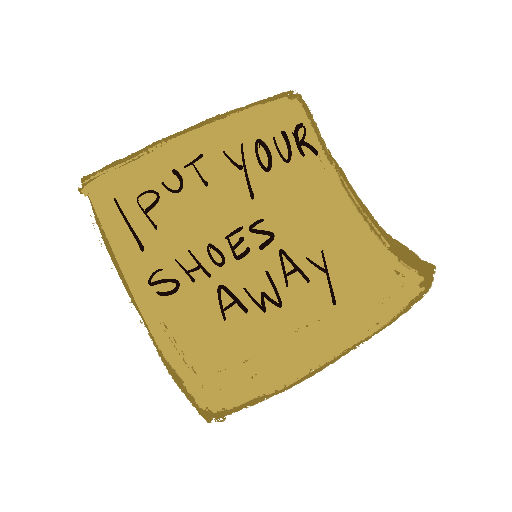 I PUT YOUR
SHOES
AWAY